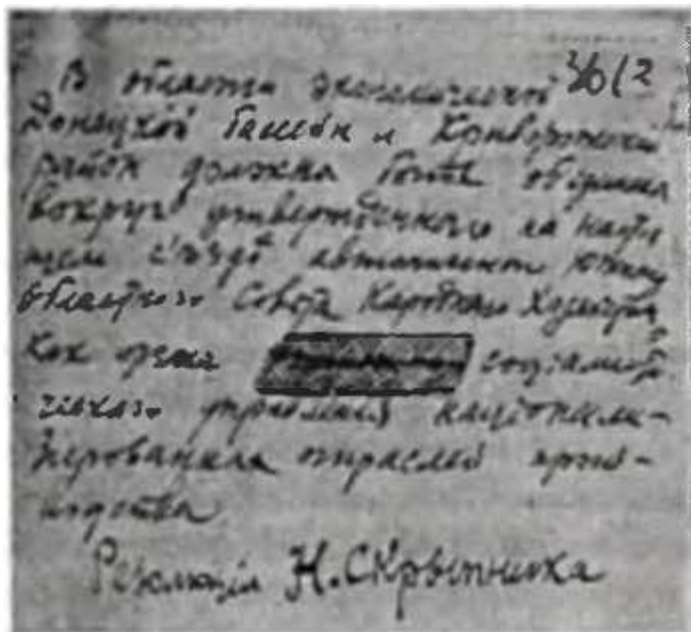 36/2
В области экономической
Донецкой бассейн и Криворожский
район должна быть объединена
вокруг утвержденного на настоя
щем съѣздѣ автономном южном
областного Совета Народнаго Хозяйства,
как орган социалисти
ческаго управления национали-
зированными отраслей произ-
водства
Резолюция Н. Скрыпника